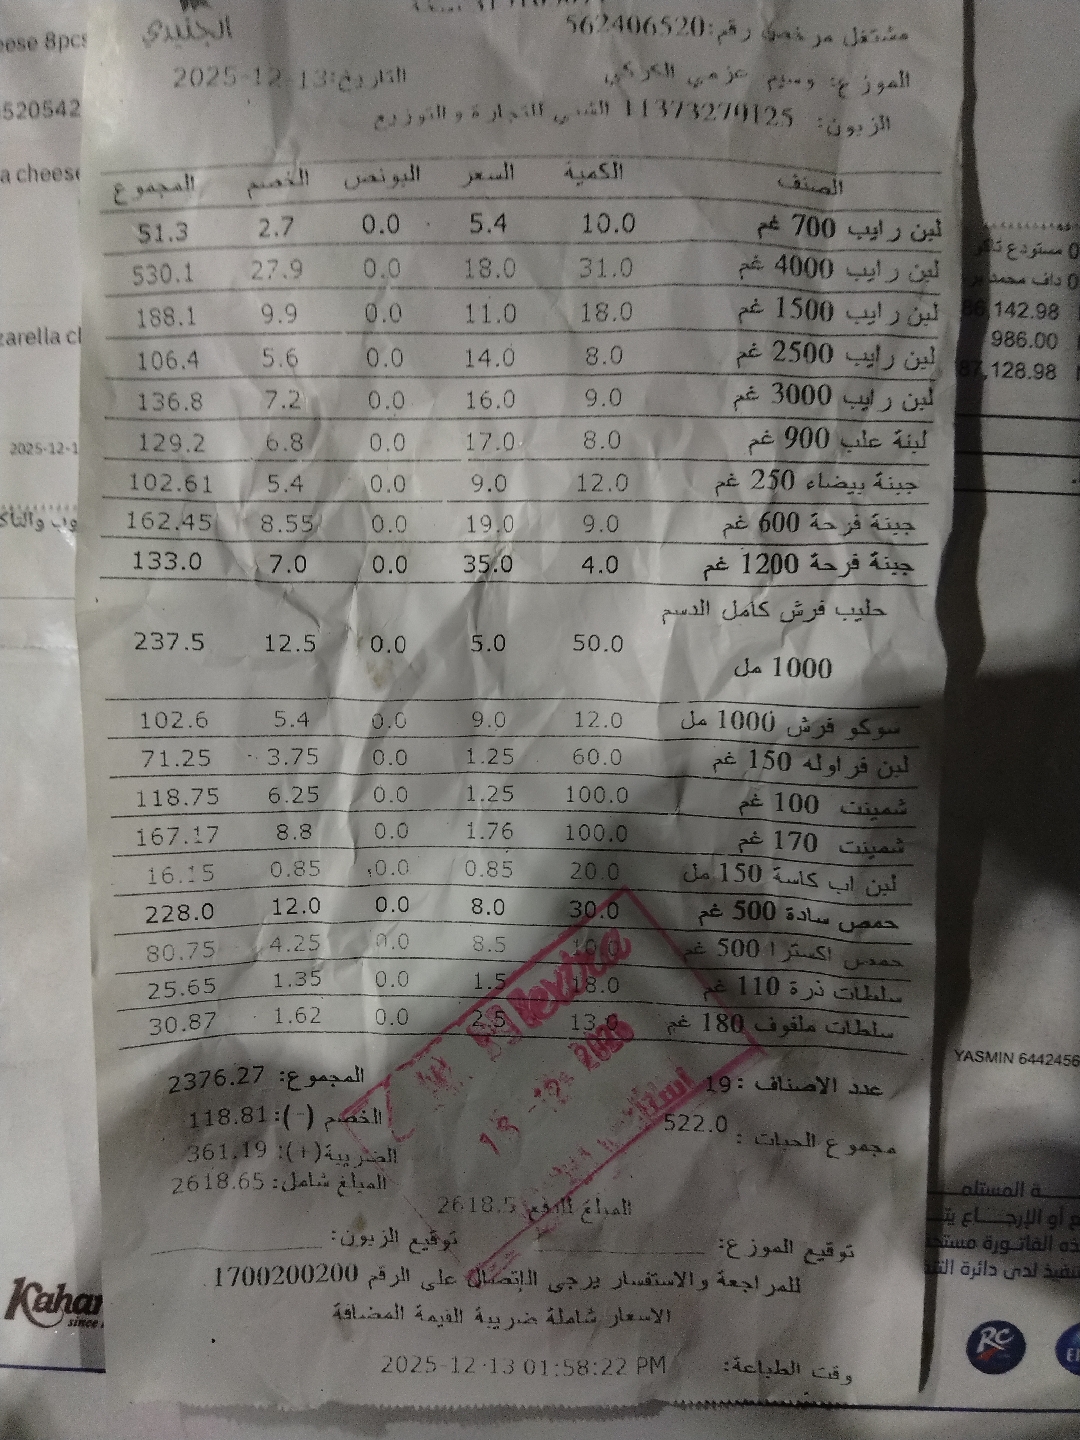 الجنيدي
مشتغل مرخص رقم:562406520
الموزع: وسيم عزمي الكركي
التاريخ:2025-12-13
الزبون: 11373270125 الشني للتجارة والتوزيع
الصنف الكمية السعر البونص الخصم المجموع
لبن رايب 700 غم 10.0 5.4 0.0 2.7 51.3
لبن رايب 4000 غم 31.0 18.0 0.0 27.9 530.1
لبن رايب 1500 غم 18.0 11.0 0.0 9.9 188.1
لبن رايب 2500 غم 8.0 14.0 0.0 5.6 106.4
لبن رايب 3000 غم 9.0 16.0 0.0 7.2 136.8
لبنة علب 900 غم 8.0 17.0 0.0 6.8 129.2
جبنة بيضاء 250 غم 12.0 9.0 0.0 5.4 102.61
جبنة فرحة 600 غم 9.0 19.0 0.0 8.55 162.45
جبنة فرحة 1200 غم 4.0 35.0 0.0 7.0 133.0
حليب فرش كامل الدسم
1000 مل 50.0 5.0 0.0 12.5 237.5
سوكو فرش 1000 مل 12.0 9.0 0.0 5.4 102.6
لبن فراوله 150 غم 60.0 1.25 0.0 3.75 71.25
شمينت 100 غم 100.0 1.25 0.0 6.25 118.75
شمينت 170 غم 100.0 1.76 0.0 8.8 167.17
لبن اب كاسة 150 مل 20.0 0.85 0.0 0.85 16.15
حمص سادة 500 غم 30.0 8.0 0.0 12.0 228.0
حمص اكسترا 500 غم 10.0 8.5 0.0 4.25 80.75
سلطات ذرة 110 غم 18.0 1.5 0.0 1.35 25.65
سلطات ملفوف 180 غم 13.0 2.5 0.0 1.62 30.87
عدد الاصناف :19
المجموع: 2376.27
مجموع الحبات : 522.0
الخصم (-):118.81
الضريبة(+): 361.19
المبلغ شامل: 2618.65
المبلغ للدفع 2618.5
توقيع الموزع:
توقيع الزبون:
للمراجعة والاستفسار يرجى الإتصال على الرقم 1700200200
الاسعار شاملة ضريبة القيمة المضافة
وقت الطباعة: 2025-12-13 01:58:22 PM
eese 8pcs
520542
a cheese
zarella
2025-12-1
مستودع
142.98
986.00
128.98
YASMIN 6442456
Kahar
since
RC